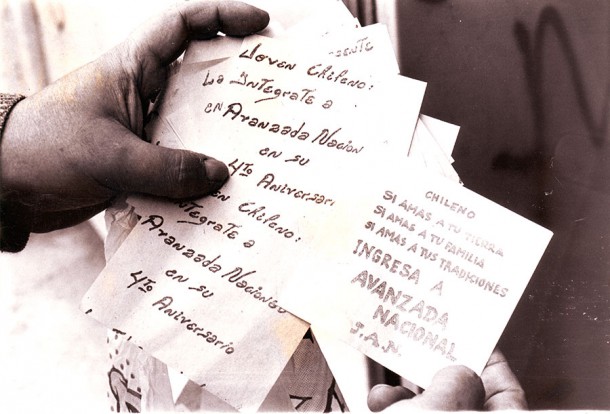 SENTE
Joven Chileno:
La IntegraTe a
en Avanzada Nacion
en su
4to Aniversari
en Chileno:
IntegraTe a
Avanzada Nacional
en su
4to Aniversario
CHILENO
SI AMAS A TU TIERRA
SI AMAS A TU FAMILIA
SI AMAS A TUS TRADICIONES
INGRESA A
AVANZADA
NACIONAL
J.A.N.